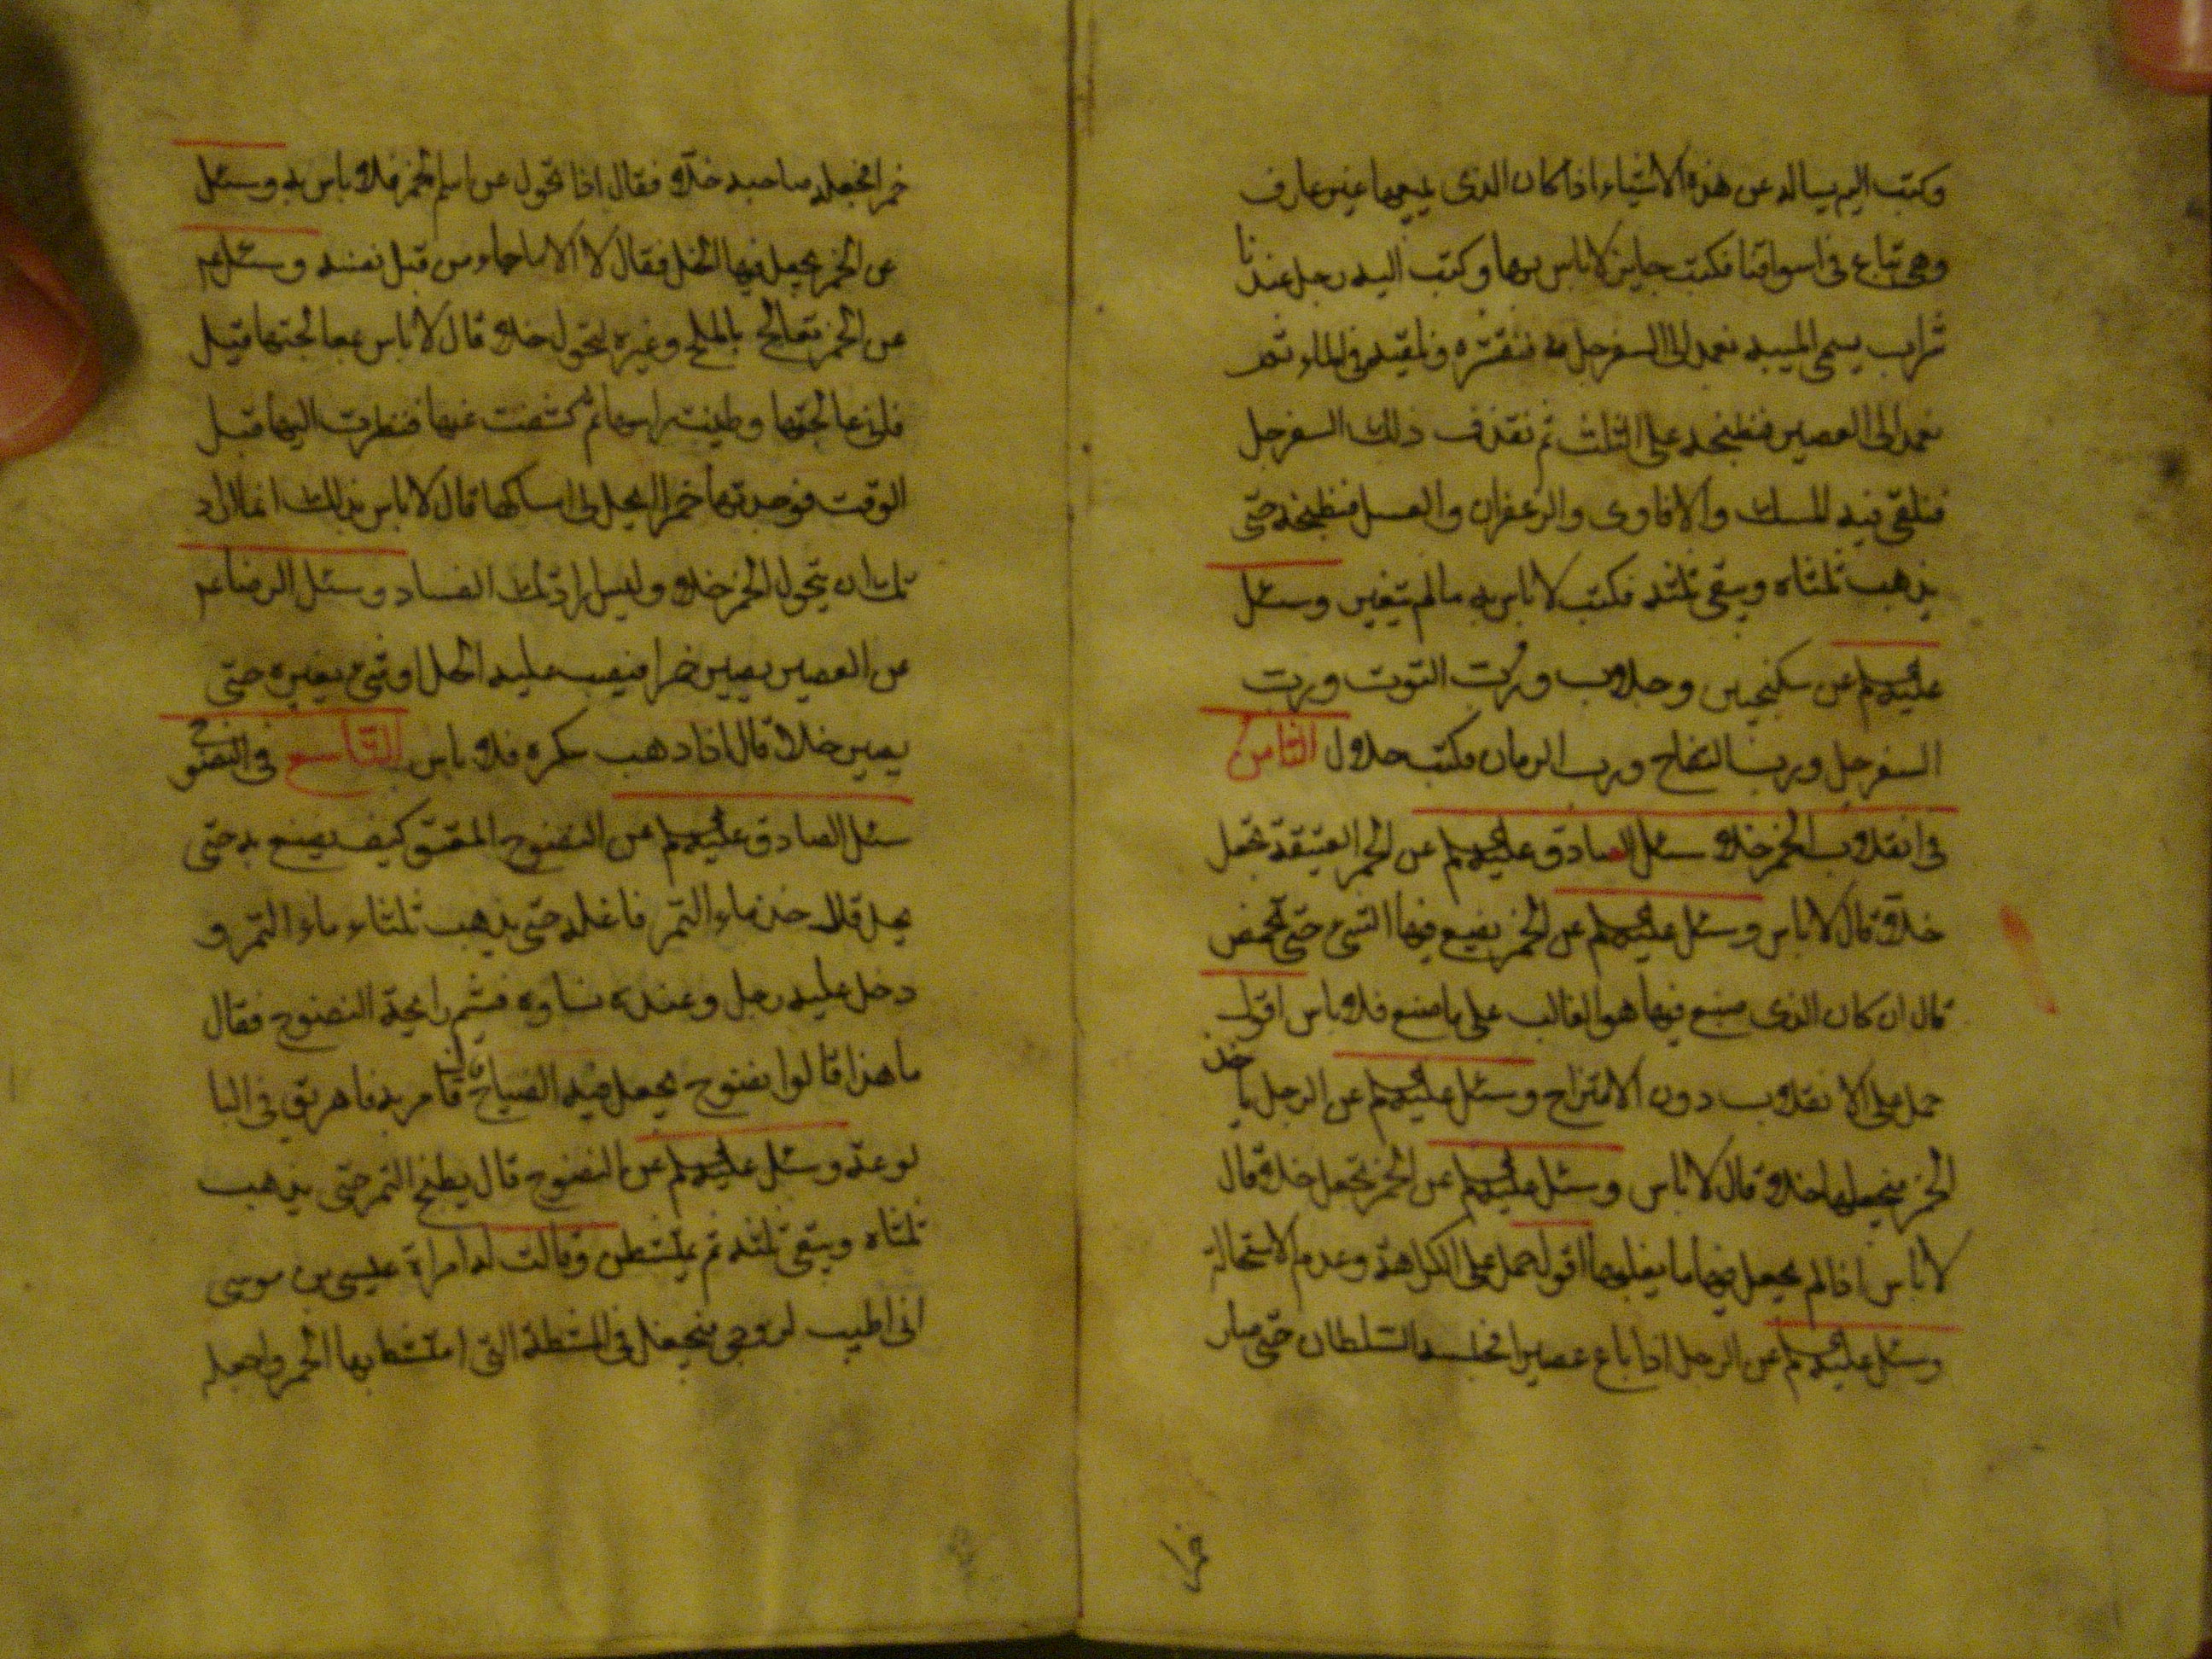 وكتب اليه يساله عن هذه الاشياء اذا كان الذى يبيعها غير عارف
وهى تباع فى اسواقنا فكتب جايز لا باس بها وكتب اليه رجل عندنا
شراب يسمى الميبه نعمد الى السفرجل فنقشره ونلقيه فى الماء ثم
نعمد الى العصير فنطبخه على الثلث ثم نقذف ذلك السفرجل
فنلقى فيه المسك والافاوى والزعفران والعسل فنطبخه حتى
يذهب ثلثاه ويبقى ثلثه فكتب لا باس به ما لم يتغير وسئل
عليه السلام عن سكنجبين وجلاب ورب التوت ورب
السفرجل ورب التفاح ورب الرمان فكتب حلال الثامن
فى انقلاب الخمر خلا سئل الصادق عليه السلام عن الخمر العتيقة تجعل
خلا قال لا باس وسئل عليه السلام عن الخمر يصنع فيها الشىء حتى تحمض
قال ان كان الذى صنع فيها هو الغالب على ما صنع فلا باس اقول
حمل على الانقلاب دون الامتزاج وسئل عليه السلام عن الرجل ياخذ
الخمر فيجعلها خلا قال لا باس وسئل عليه السلام عن الخمر تجعل خلا قال
لا باس اذا لم يجعل فيها ما يغلبها اقول حمل على الكراهة وعدم الاستحالة
وسئل عليه السلام عن الرجل اذا باع عصيرا فحبسه السلطان حتى صار
خمرا
خمرا فجعله صاحبه خلا فقال اذا تحول عن اسم الخمر فلا باس به وسئل
عن الخمر يجعل فيها الخل فقال لا الا ما جاء من قبل نفسه وسئل
عن الخمر تعالج بالملح وغيره لتحول خلا قال لا باس بمعالجتها قيل
فانى عالجتها وطينت راسها ثم كشفت عنها فنظرت اليها قبل
الوقت فوجدتها خمرا ايحل لى امساكها قال لا باس بذلك انما اراد
تك ان يتحول الخمر خلا وليس ارادتك الفساد وسئل الرضا
عن العصير يصير خمرا فيصب عليه الخل او شىء يغيره حتى
يصير خلا قال اذا ذهب سكره فلا باس التاسع فى النضوح
سئل الصادق عليه السلام عن النضوح المعتق كيف يصنع به حتى
يحل قال خذ ماء التمر فاغله حتى يذهب ثلثاء ماء التمر و
دخل عليه رجل وعنده نساوه فشم رائحة النضوح فقال
ما هذا قالوا نضوح يجعل فيه الضياح قال فامر به فاهريق فى البا
لوعة وسئل عليه السلام عن النضوح قال يطبخ التمر حتى يذهب
ثلثاه ويبقى ثلثه ثم يمتشطن وقالت له امراة عيسى بن موسى
انى اطيب لزوجى فيجعل فى المشطة التى امتشط بها الخمر واجعله